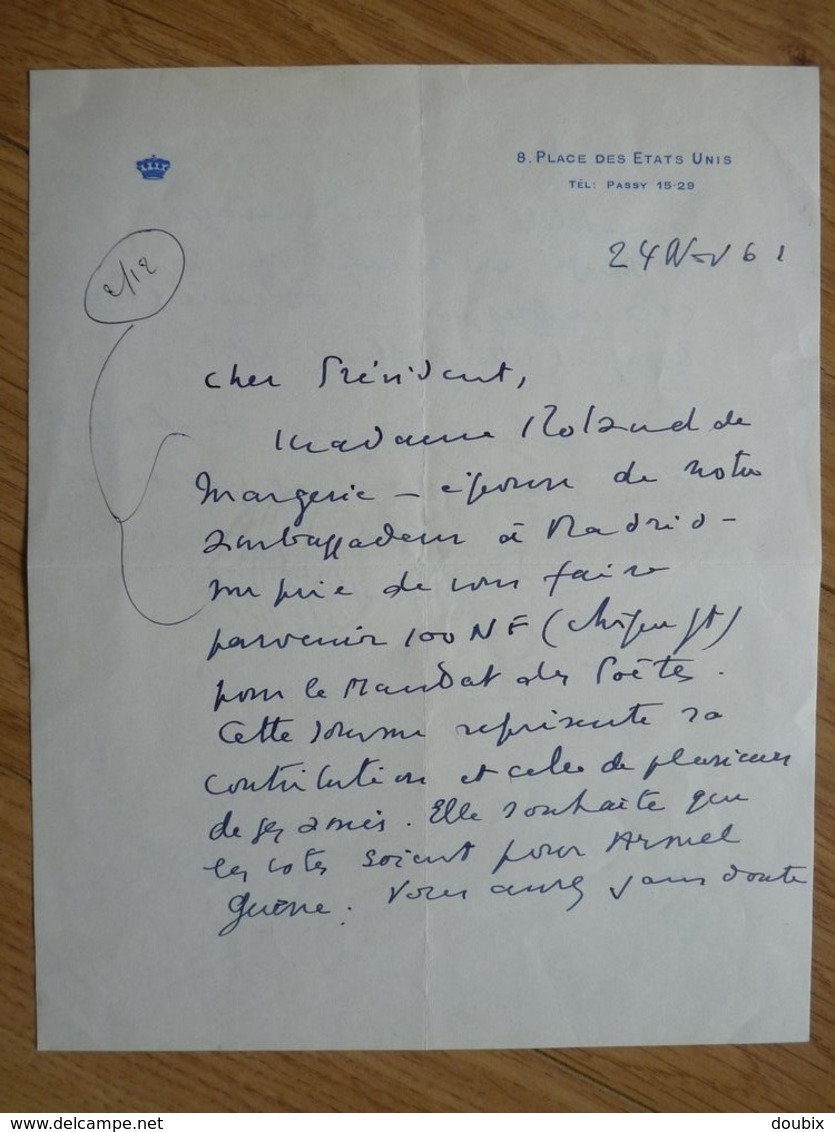 8. PLACE DES ETATS UNIS
TÉL: PASSY 15-29
24 Nov 61
2/12
Cher Président,
Madame Roland de
Margerie - épouse de notre
ambassadeur à Madrid -
me prie de vous faire
parvenir 100 NF (
pour le Mandat des Poètes.
Cette somme représente sa
contribution et celle de plusieurs
de ses amis. Elle souhaite que
les votes soient pour Armel
Guerne. Vous aurez sans doute
www.delcampe.net
doubix